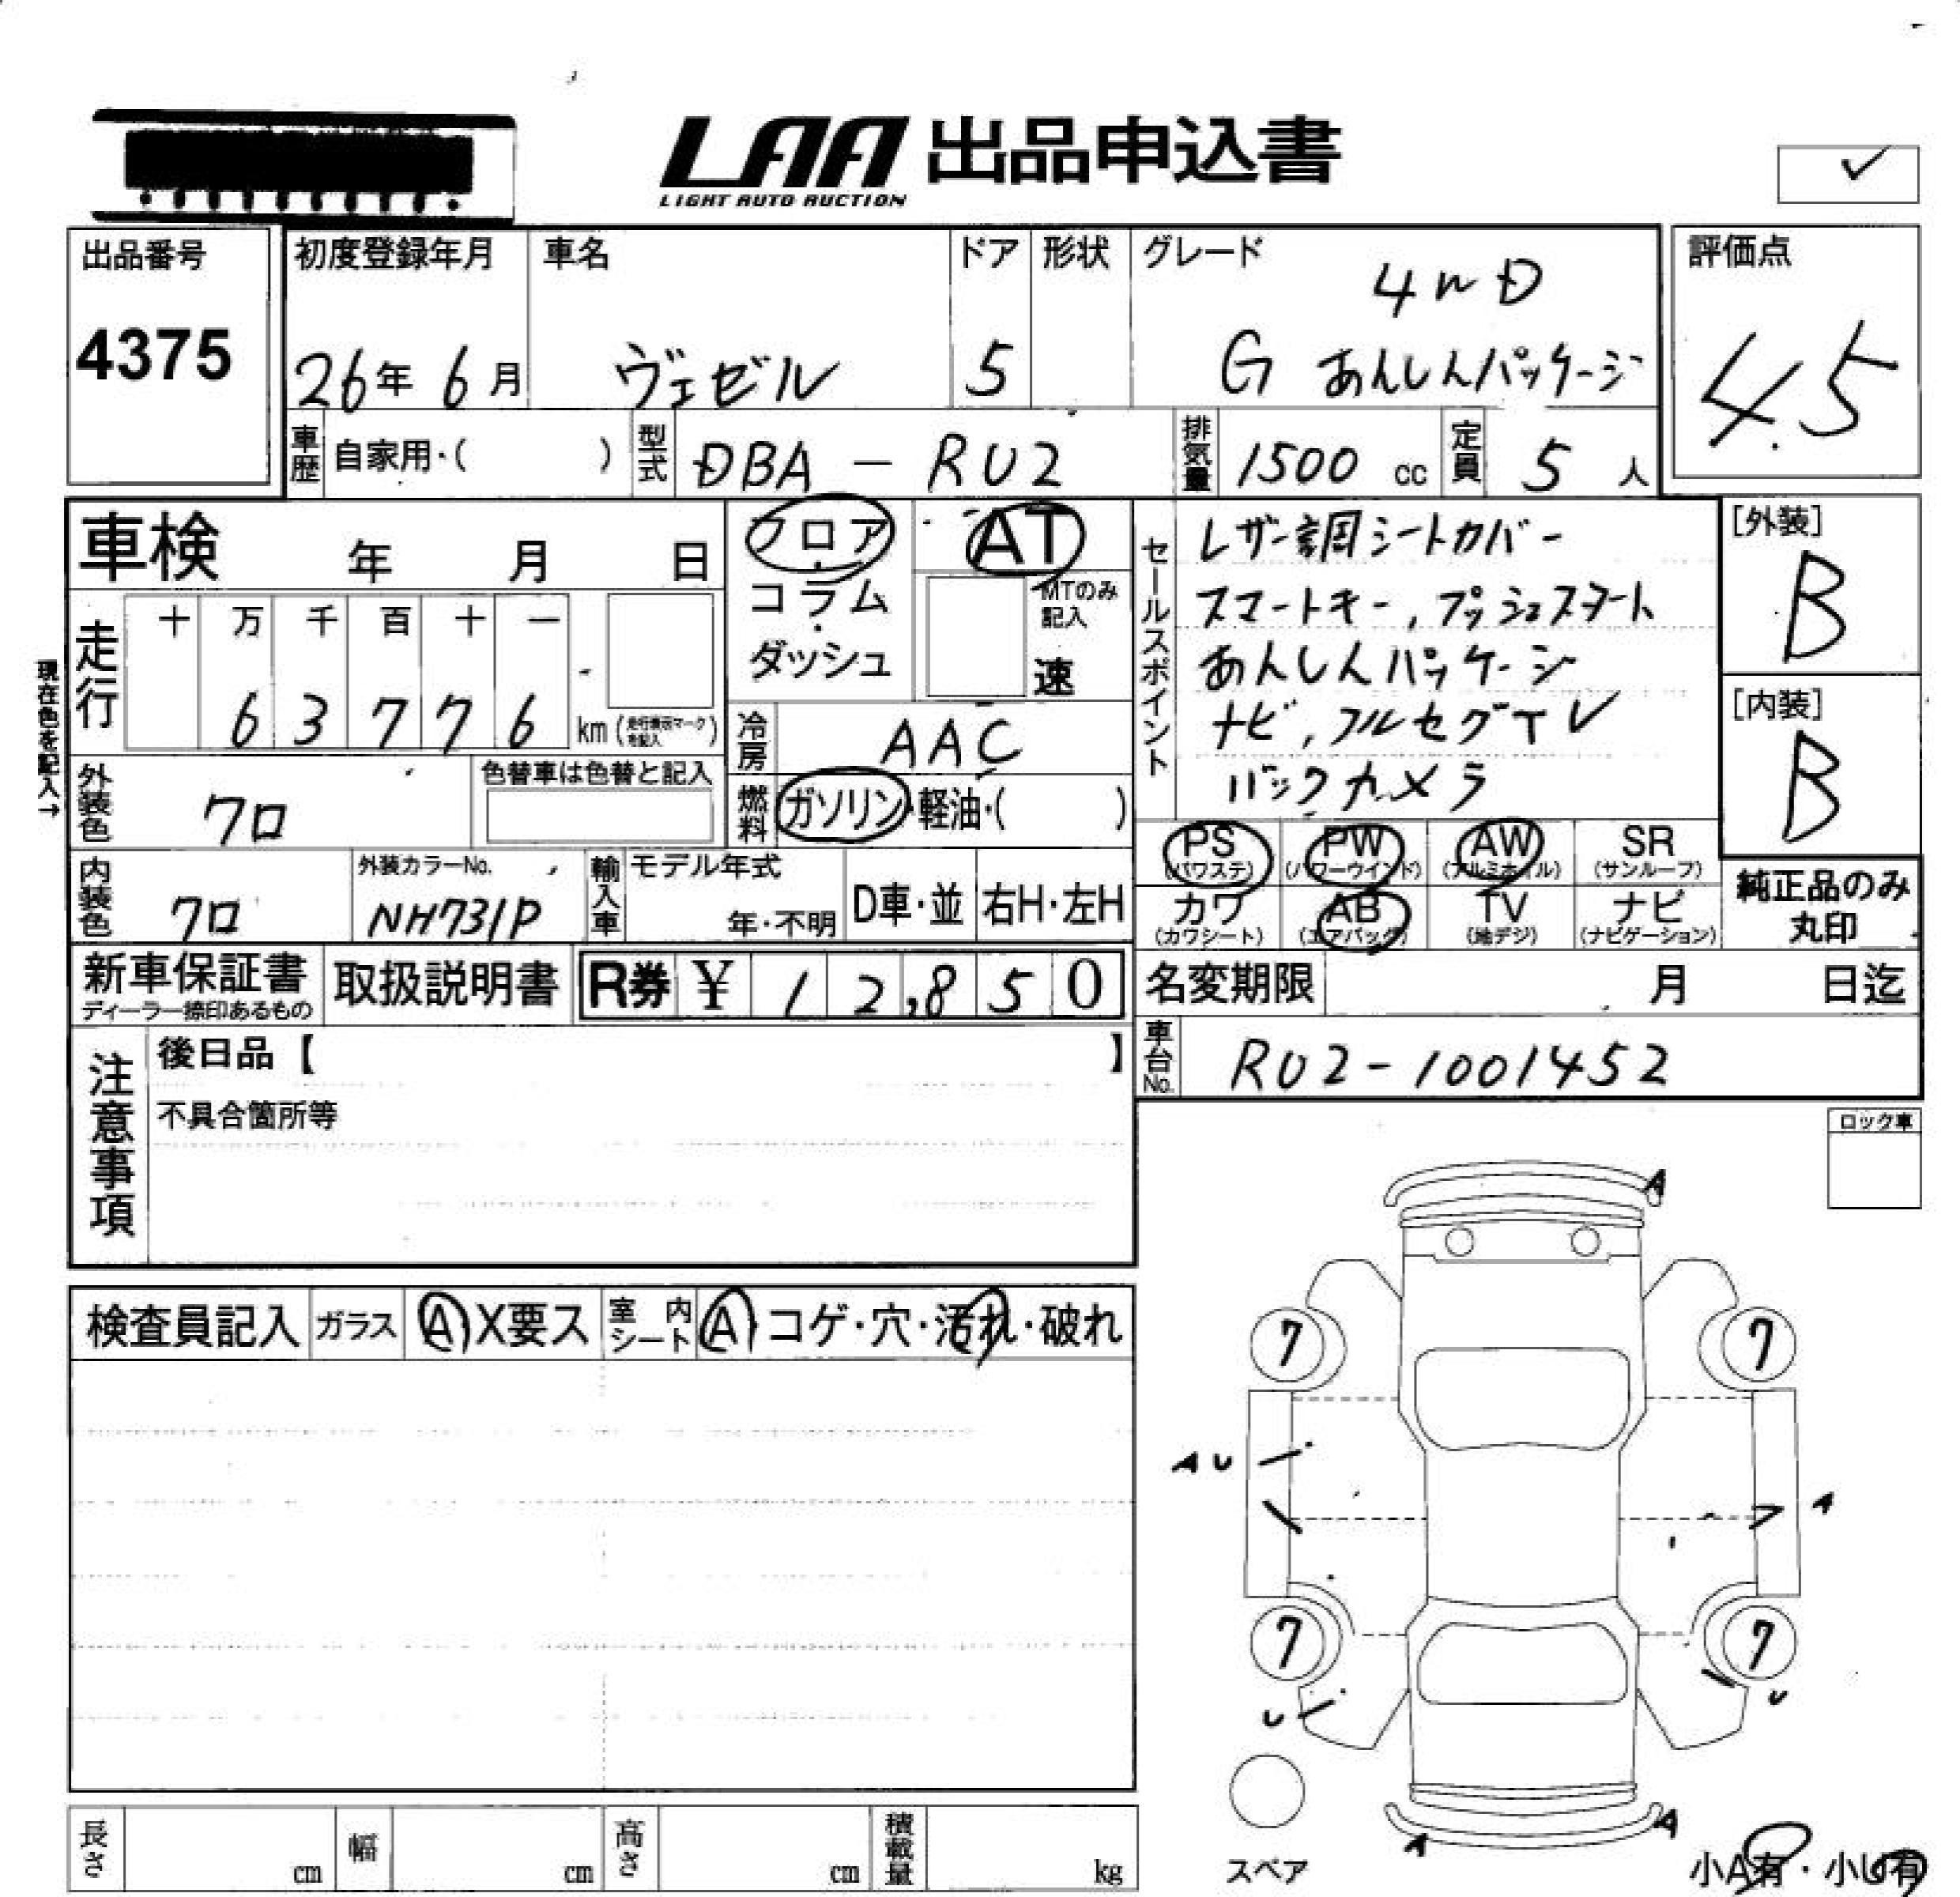 LAA 出品申込書
LIGHT AUTO AUCTION
出品番号
4375
初度登録年月 車名 ドア 形状 グレード
4WD
26年 6月 ヴェゼル 5 G あんしんパッケージ
評価点
4.5
車歴 自家用・( ) 型式 DBA - RU2 排気量 1500 cc 定員 5 人
車検 年 月 日
フロア
コラム
・
ダッシュ
AT
MTのみ
記入
速
セールスポイント
レザー調シートカバー
スマートキー, プッシュスタート
あんしんパッケージ
ナビ, フルセグTV
バックカメラ
[外装]
B
[内装]
B
現在色を記入→
走行 十 万 千 百 十 一
6 3 7 7 6 km (走行表示マークを記入)
冷房 AAC
外装色 クロ 色替車は色替と記入
燃料 ガソリン・軽油・( )
内装色 クロ 外装カラーNo. NH731P
輸入車 モデル年式 年・不明 D車・並 右H・左H
PS (パワステ) PW (パワーウインド) AW (アルミホイル) SR (サンルーフ)
カワ (カワシート) AB (エアバッグ) TV (地デジ) ナビ (ナビゲーション)
純正品のみ
丸印
新車保証書 取扱説明書 R券 ¥ 1 2,8 5 0
ディーラー捺印あるもの
名変期限 月 日迄
車台No. RU2-1001452
注意事項
後日品【 】
不具合箇所等
ロック車
検査員記入 ガラス A・X要ス 室内シート A・コゲ・穴・汚れ・破れ
A
7 7
A U
A
7 7
U U
A A
スペア
小A有・小U有
長さ cm 幅 cm 高さ cm 積載量 kg